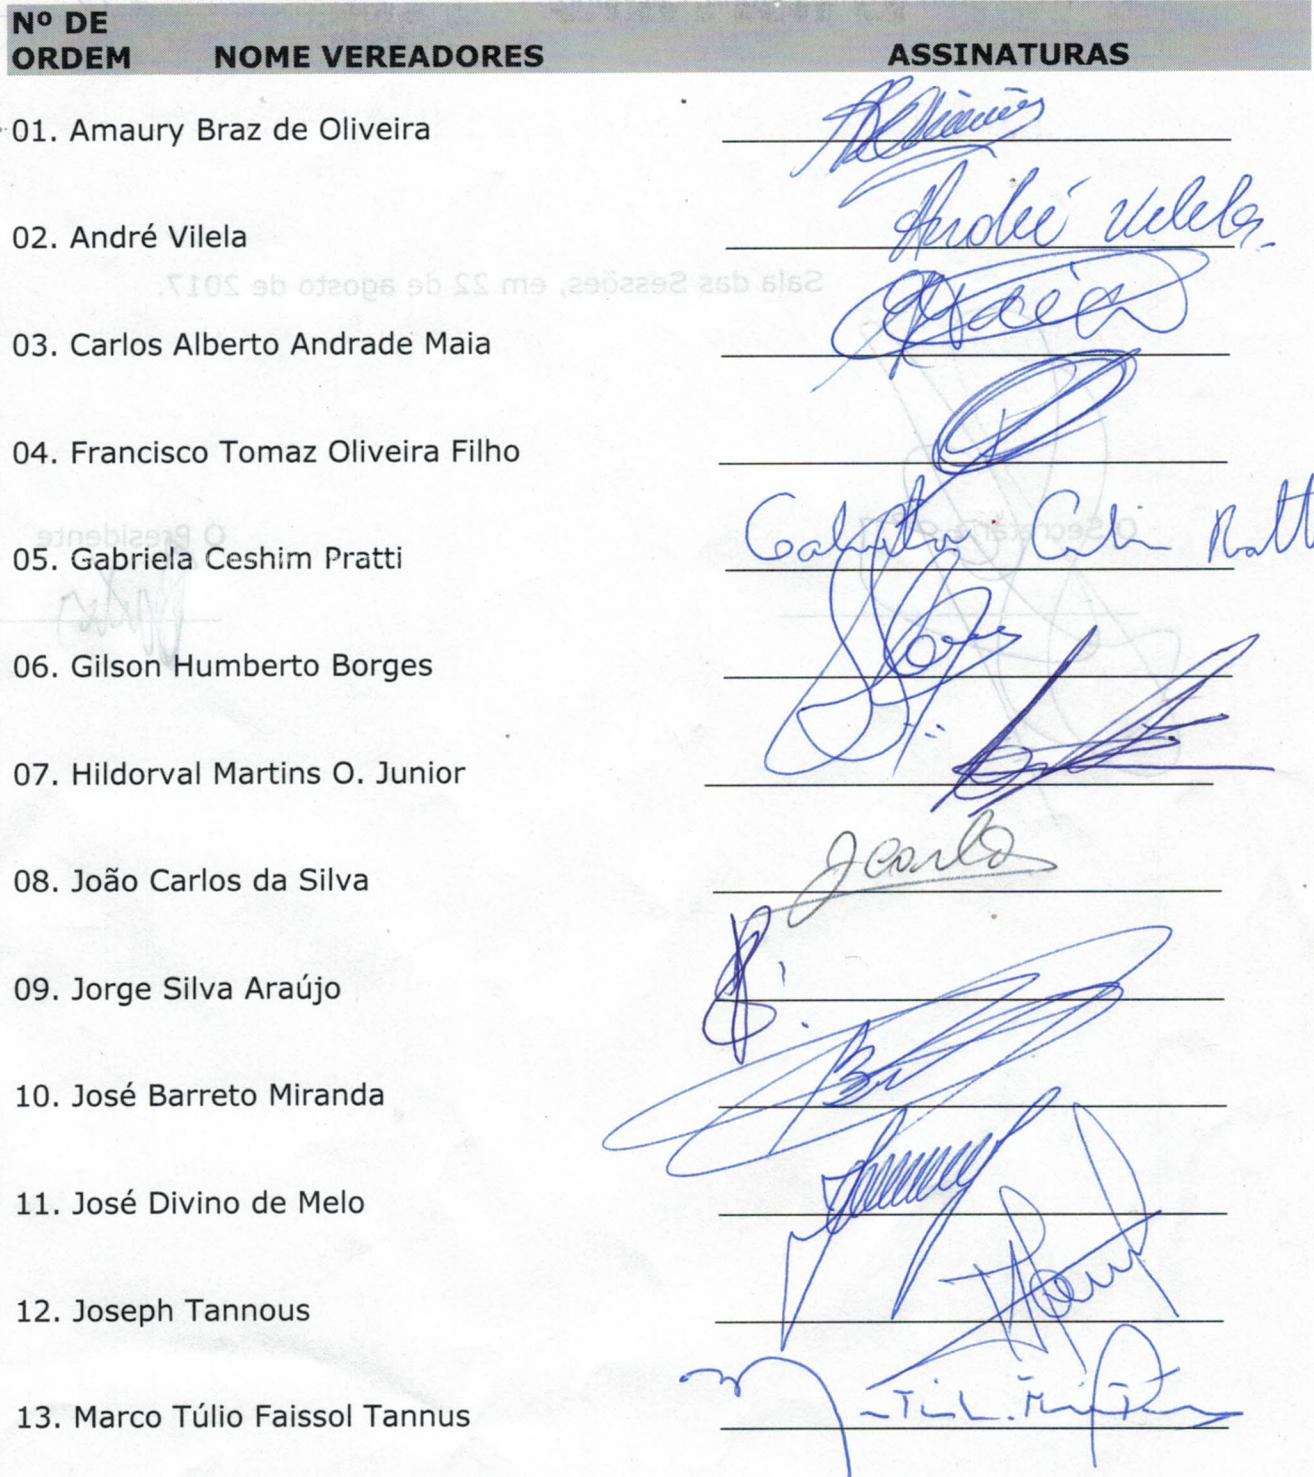 Nº DE
ORDEM NOME VEREADORES ASSINATURAS
01. Amaury Braz de Oliveira
02. André Vilela André Vilela
Sala das Sessões, em 22 de agosto de 2017.
03. Carlos Alberto Andrade Maia
04. Francisco Tomaz Oliveira Filho
O Presidente O Secretário
05. Gabriela Ceshim Pratti
06. Gilson Humberto Borges
07. Hildorval Martins O. Junior
08. João Carlos da Silva JCarlos
09. Jorge Silva Araújo
10. José Barreto Miranda
11. José Divino de Melo
12. Joseph Tannous
13. Marco Túlio Faissol Tannus